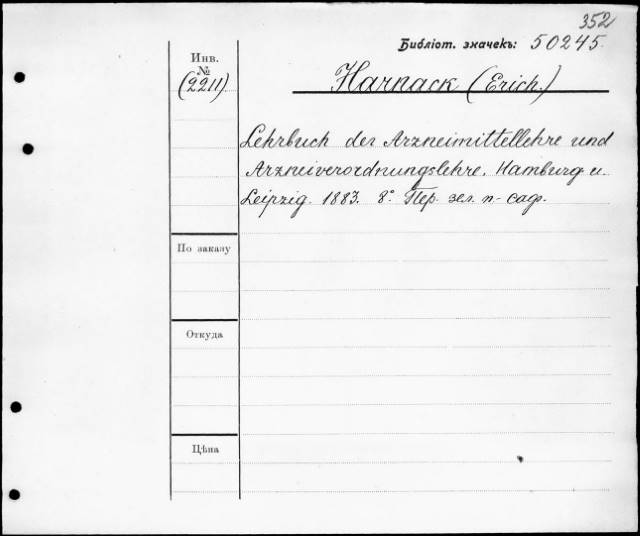 352
Библіот. значекъ: 50245.
Инв.
№
(2211).
Harnack (Erich.)
Lehrbuch der Arzneimittellehre und
Arzneiverordnungslehre. Hamburg u.
Leipzig. 1883. 8°. Пер. зел. п-саф.
По заказу
Откуда
Цѣна